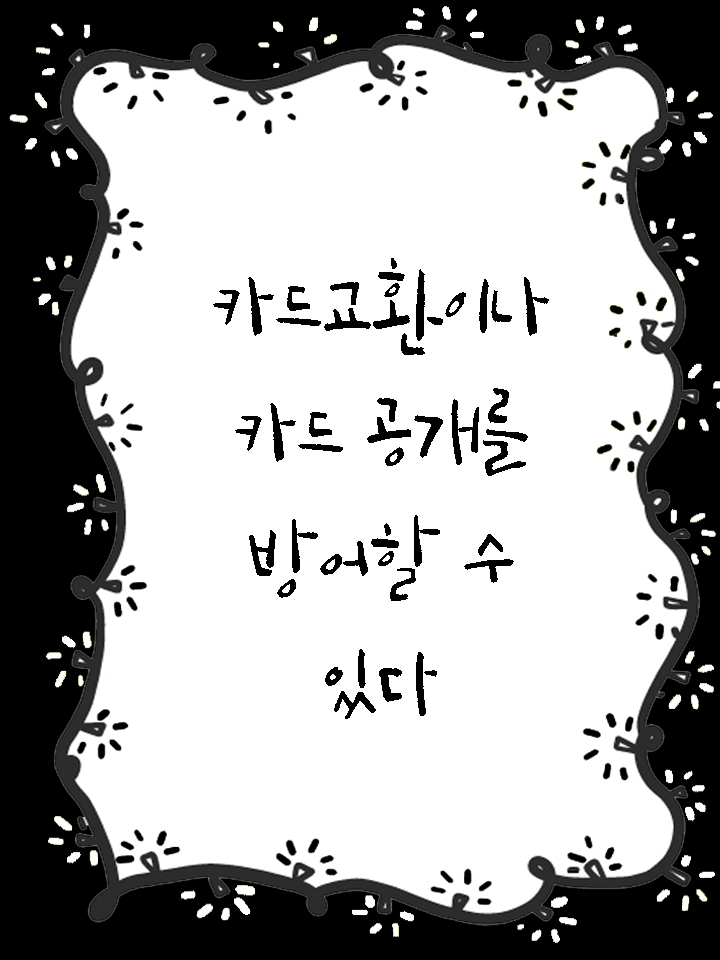 카드교환이나
카드 공개를
방어할 수
있다